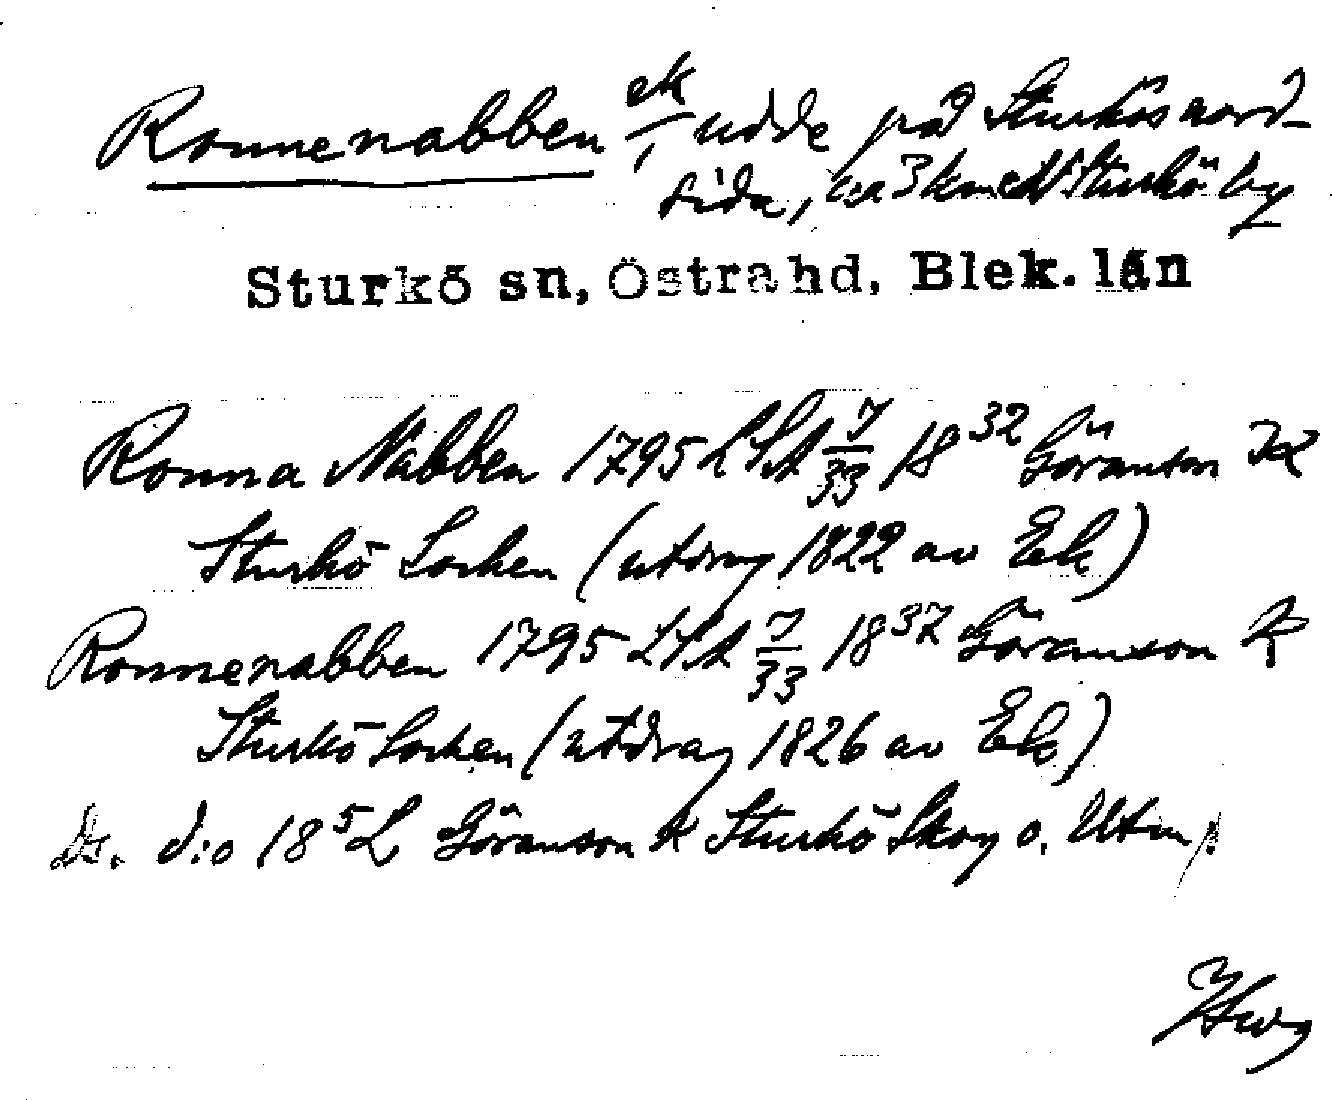 Ronnenabben ek/, udde på Sturkös nord-
sida, ca 3 km N Sturkö by
Sturkö sn, Östra hd, Blek. län
Ronna Nabben 1795 LSA 7/33 18 32 Göranson K
Sturkö Socken (utdrag 1822 av Ek)
Ronnenabben 1795 LSA 7/33 18 37 Göranson K
Sturkö Socken (utdrag 1826 av Ek)
Ds. d:o 18 5 L Göranson K Sturkö Skog o. Utm.